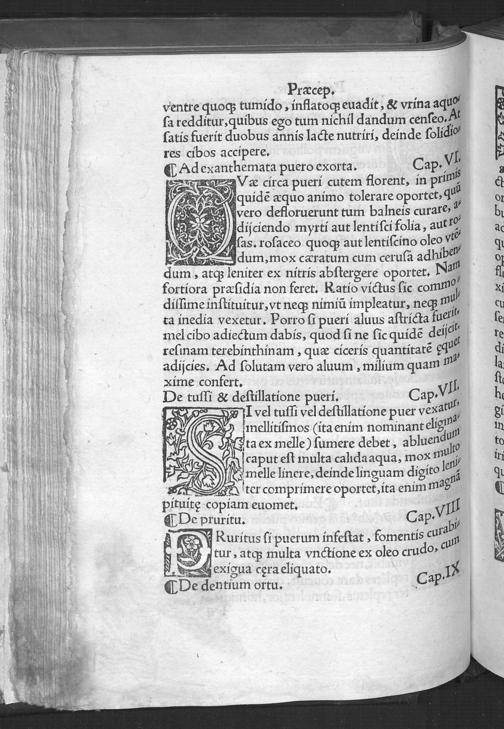 Præcep.
ventre quoq; tumido, inflatoq; euadit, & vrina aquo-
sa redditur, quibus ego tum nichil dandum censeo. At
satis fuerit duobus annis lacte nutriri, deinde solidio-
res cibos accipere.
¶Ad exanthemata puero exorta. Cap. VI.
QVæ circa pueri cutem florent, in primis
quidē æquo animo tolerare oportet, quū
vero defloruerunt tum balneis curare, a-
dijciendo myrti aut lentisci folia, aut ro-
sas. rosaceo quoq; aut lentiscino oleo vtē-
dum, mox cæratum cum cerusa adhiben-
dum, atq; leniter ex nitris abstergere oportet. Nam
fortiora præsidia non feret. Ratio victus sic commo-
dissime instituitur, vt neq; nimiū impleatur, neq; mul-
ta inedia vexetur. Porro si pueri aluus astricta fuerit,
mel cibo adiectum dabis, quod si ne sic quidē deijcit,
resinam terebinthinam, quæ ciceris quantitatē ęquet
adijcies. Ad solutam vero aluum, milium quam ma-
xime confert.
De tussi & destillatione pueri. Cap. VII.
SI vel tussi vel destillatione puer vexatur,
mellitismos (ita enim nominant eligma-
ta ex melle) sumere debet, abluendum
caput est multa calida aqua, mox multo
melle linere, deinde linguam digito leni-
ter comprimere oportet, ita enim magnā
pituitę copiam euomet.
¶De pruritu. Cap. VIII
PRuritus si puerum infestat, fomentis curabi-
tur, atq; multa vnctione ex oleo crudo, cum
exigua cęra eliquato.
¶De dentium ortu. Cap. IX